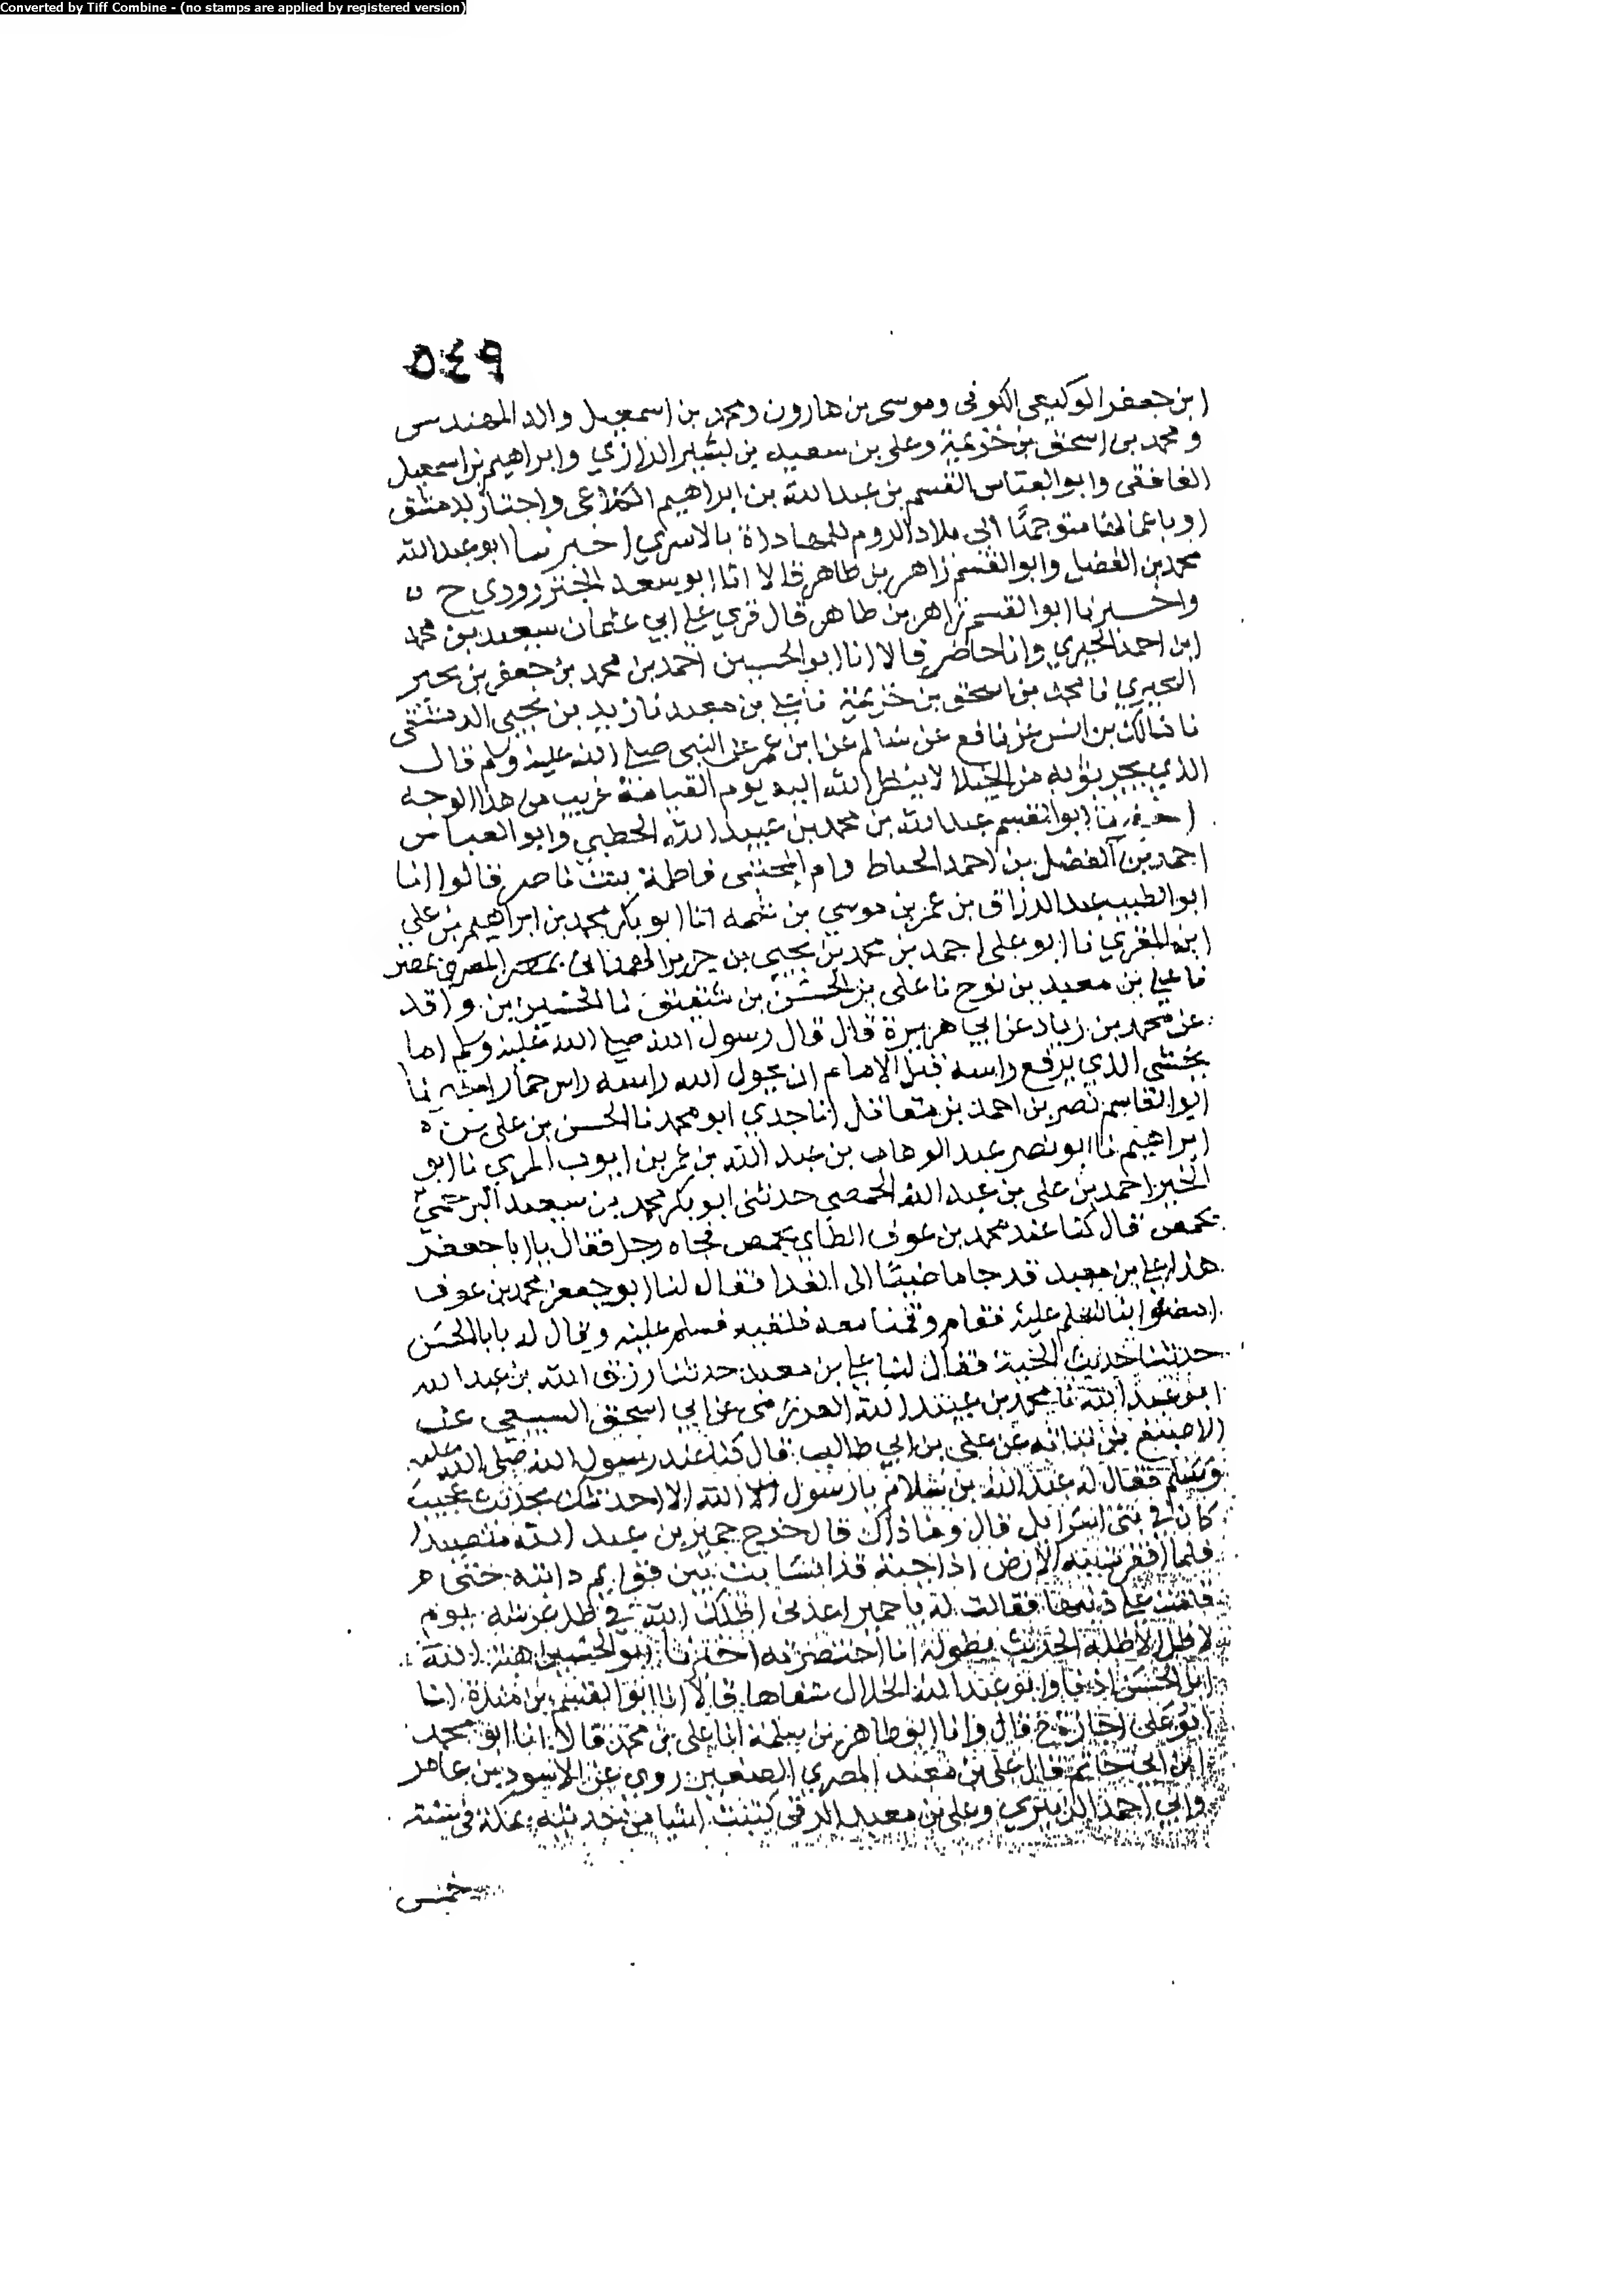 Converted by Tiff Combine - (no stamps are applied by registered version)
٥٤٩
ابن جعفر الوكيعي الكوفي وموسى بن هارون ومحمد بن اسمعيل والد المهندس
ومحمد بن اسحق بن خزيمة وعلي بن سعيد بن بشير الرازي وابراهيم بن اسمعيل
الغافقي وابو العباس القسم بن عبد الله بن ابراهيم الكلاعي واجتاز بدمشق
متوجها الى بلاد الروم بالاسرى اخبرنا ابو عبد الله
محمد بن الفضل وابو القسم زاهر بن طاهر قالا انا ابو سعد الجنزرودي ح
واخبرنا ابو القسم زاهر بن طاهر قال قري على ابي عثمان سعيد بن محمد
ابن احمد البحيري وانا حاضر قالا انا ابو الحسين احمد بن محمد بن جعفر بن بحير
البحيري نا محمد بن اسحق بن خزيمة نا علي بن معبد نا زيد بن يحيى الدمشقي
نا مالك بن انس عن نافع عن سالم عن ابن عمر عن النبي صلى الله عليه وسلم قال
الذي يجر ثوبه من الخيلا لا ينظر الله اليه يوم القيامة غريب من هذا الوجه
اخبرنا ابو القسم عبد الله بن محمد بن عبيد الله الخطبي وابو العباس
احمد بن الفضل بن احمد الخياط وام المجتبى فاطمة بنت ناصر قالوا انا
ابو الطيب عبد الرزاق بن عمر بن موسى بن شمه انا ابو بكر محمد بن ابراهيم بن علي
ابن المقري نا ابو علي احمد بن محمد بن يحيى بن جرير الهمداني المصري بمصر
نا علي بن معبد بن نوح نا علي بن الحسن بن شقيق نا الحسين بن واقد
عن محمد بن زياد عن ابي هريرة قال قال رسول الله صلى الله عليه وسلم اما
يخشى الذي يرفع راسه قبل الامام ان يحول الله راسه راس حمار انبانا
ابو القاسم نصر بن احمد بن مقاتل انا جدي ابو محمد نا الحسن بن علي بن
ابراهيم نا ابو نصر عبد الوهاب بن عبد الله بن عمر بن ايوب المري نا ابو
الخير احمد بن علي بن عبد الله الحمصي حدثني ابو بكر محمد بن سعيد الترخمي
بحمص قال كنا عند محمد بن عوف الطاي بحمص فجاه رجل فقال يا ابا جعفر
هذا علي بن معبد قد جا ماضيا الى الغدا فقال لنا ابو جعفر محمد بن عوف
امضوا بنا لنسلم عليه فقام وقمنا معه فلقيه فسلم عليه وقال له يا ابا الحسن
حدثنا حديث الحية فقال لنا علي بن معبد حدثنا رزق الله بن عبد الله
ابو عبد الله نا محمد بن عبيد الله العرزمي عن ابي اسحق السبيعي عن
الاصبغ بن نباته عن علي بن ابي طالب قال كنا عند رسول الله صلى الله عليه
وسلم فقال له عبد الله بن سلام يا رسول الله الا احدثك بحديث عجيب
كان في بني اسرايل قال وما ذاك قال خرج حمير بن عبد الله متصيدا
فلما اقفرت به الارض اذا حية قد انسابت بين قوايم دابته حتى
قامت على ذنبها فقالت له يا حمير اعذني اظلك الله في ظل عرشه يوم
لا ظل الا ظله الحديث بطوله انا اختصرته اخبرنا ابو الحسين هبة الله
ابن الحسن اذنا وابو عبد الله الخلال شفاها قالا انا ابو القسم بن مندة انا
ابو علي اجازة ح قال وانا ابو طاهر بن سلمة انا علي بن محمد قالا انا ابو محمد
ابن ابي حاتم قال علي بن معبد المصري الصغير روى عن الاسود بن عامر
وابي احمد الزبيري وعلي بن معبد الرقي كتبت شيا من حديثه بمكة في سنة
خمس